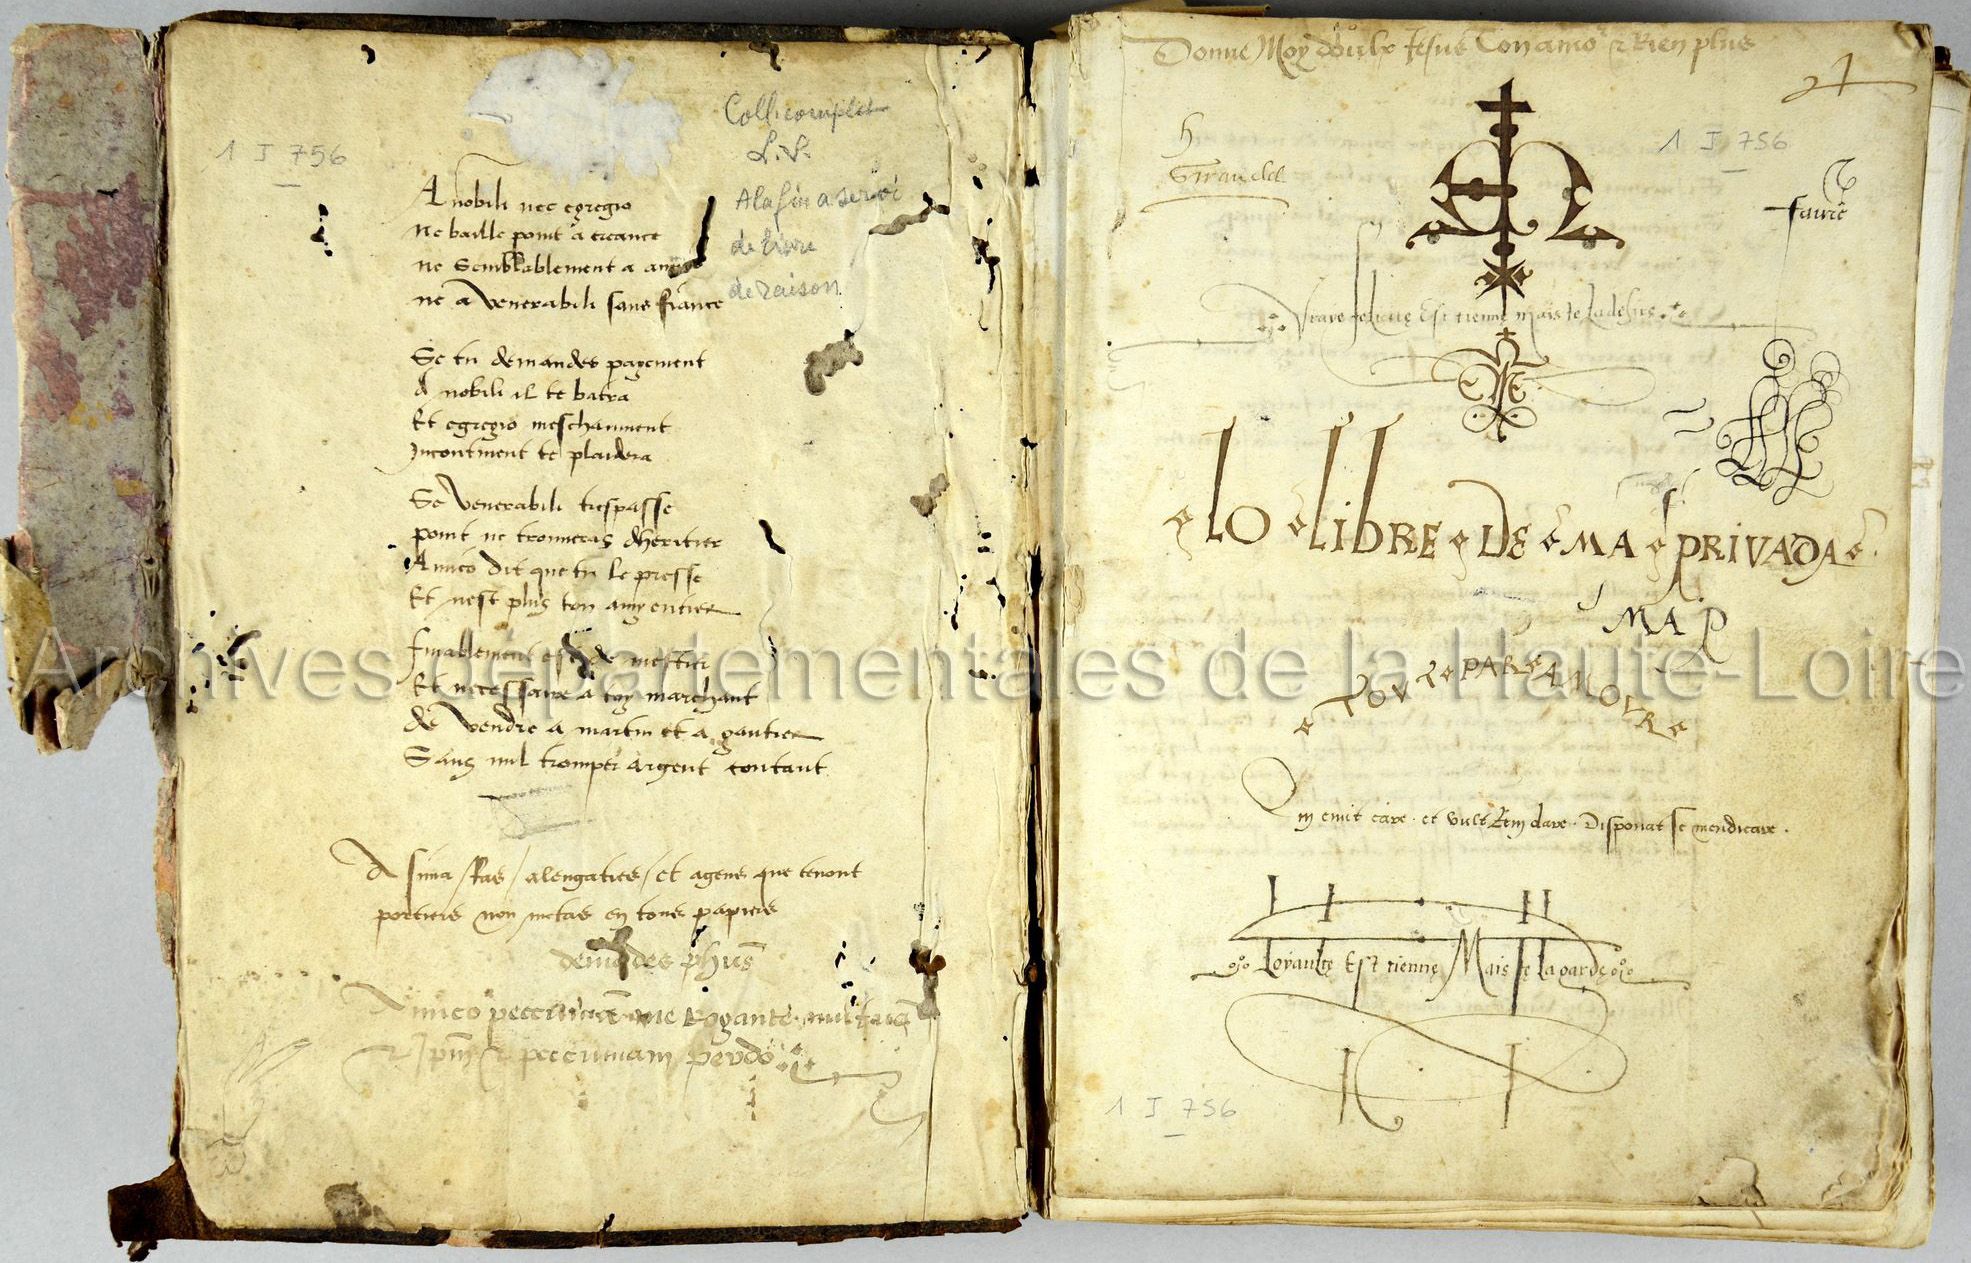 1 I 756
Coll. complet
L.V.
A la fin a servi
de livre
de raison
A nobili nec egregio
ne baille point a creance
ne Semblablement a amico
ne a Venerabili sans fiance
Se tu demandes payement
A nobili il te batra
Et egregio meschamment
Incontinent te plaidera
Se Venerabili trespasse
point ne trouueras dheritier
Amico dit que tu le presse
Et nest plus ton amy entier
finablement est de mestier
Et necessaire a toy marchant
de Vendre a martin et a gautier
Sans nul tromper argent contant
A sima / ras / alengaties / et agens que tenont
portieis non metas en tous papieis
Amico peccuniam me Rogante
peccuniam perdo
Donne Moy doulx Jesus Ton amor Rien plus
h
Giraudel
1 I 756
faure
Vraye Est tienne mais te
LO LIBRE DE MA PRIVADA
MAP
TOUT PAR AMOUR
Qui emit care et vult Rem dare Disponat se mendicare.
Loyaulte Est tienne Mais te la garde
1 I 756
Archives départementales de la Haute-Loire